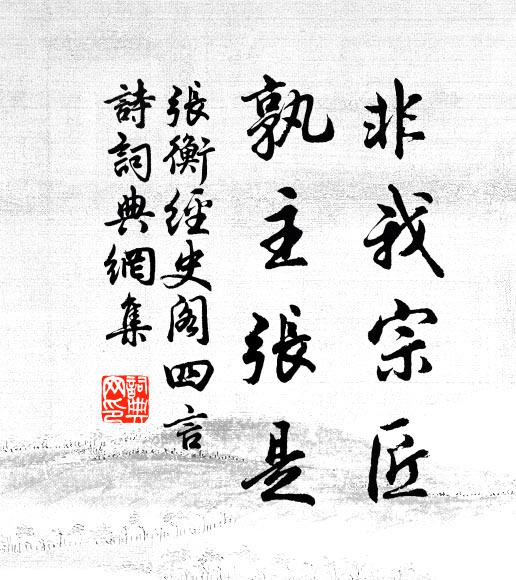 非我宗匠
孰主張是
張衡經史閣四言
詩詞典網集
詞典网印